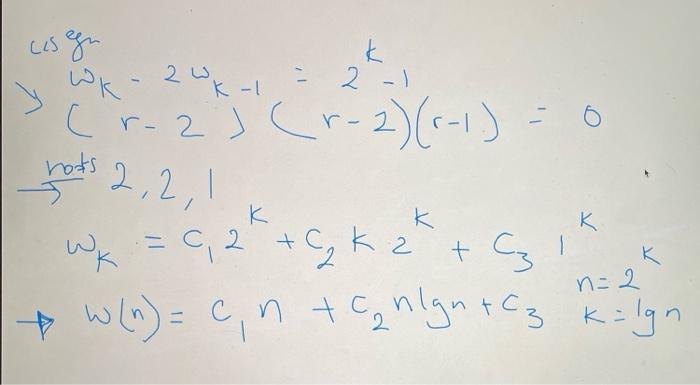 eqn
w_K - 2w_{K-1} = 2^k - 1
(r-2)(r-2)(r-1) = 0
→ roots 2,2,1
w_K = c_1 2^K + c_2 K 2^K + c_3 1^K
n = 2^K
→ W(n) = c_1 n + c_2 n lg n + c_3 K = lg n